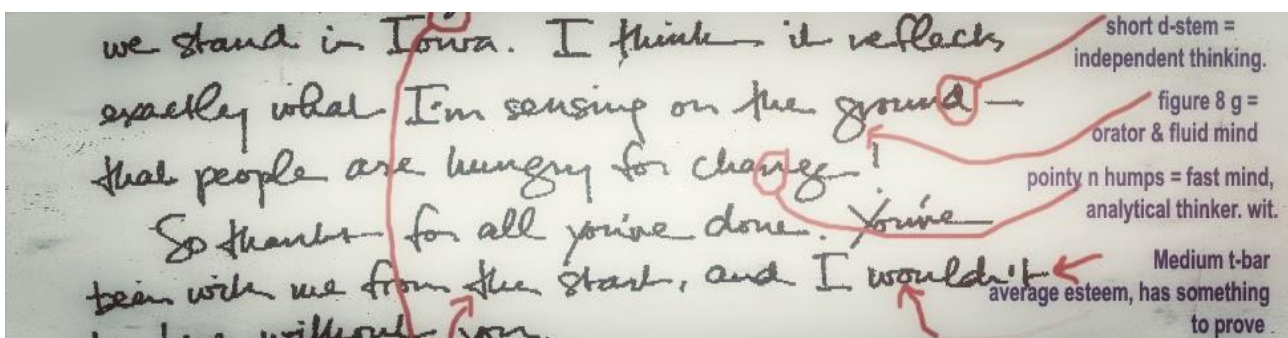 we stand in Iowa. I think it reflects
exactly what I'm sensing on the ground —
that people are hungry for change!
So thanks for all you've done. You've
been with me from the start, and I wouldn't
be here without you.
short d-stem =
independent thinking.
figure 8 g =
orator & fluid mind
pointy n humps = fast mind,
analytical thinker. wit.
Medium t-bar
average esteem, has something
to prove.